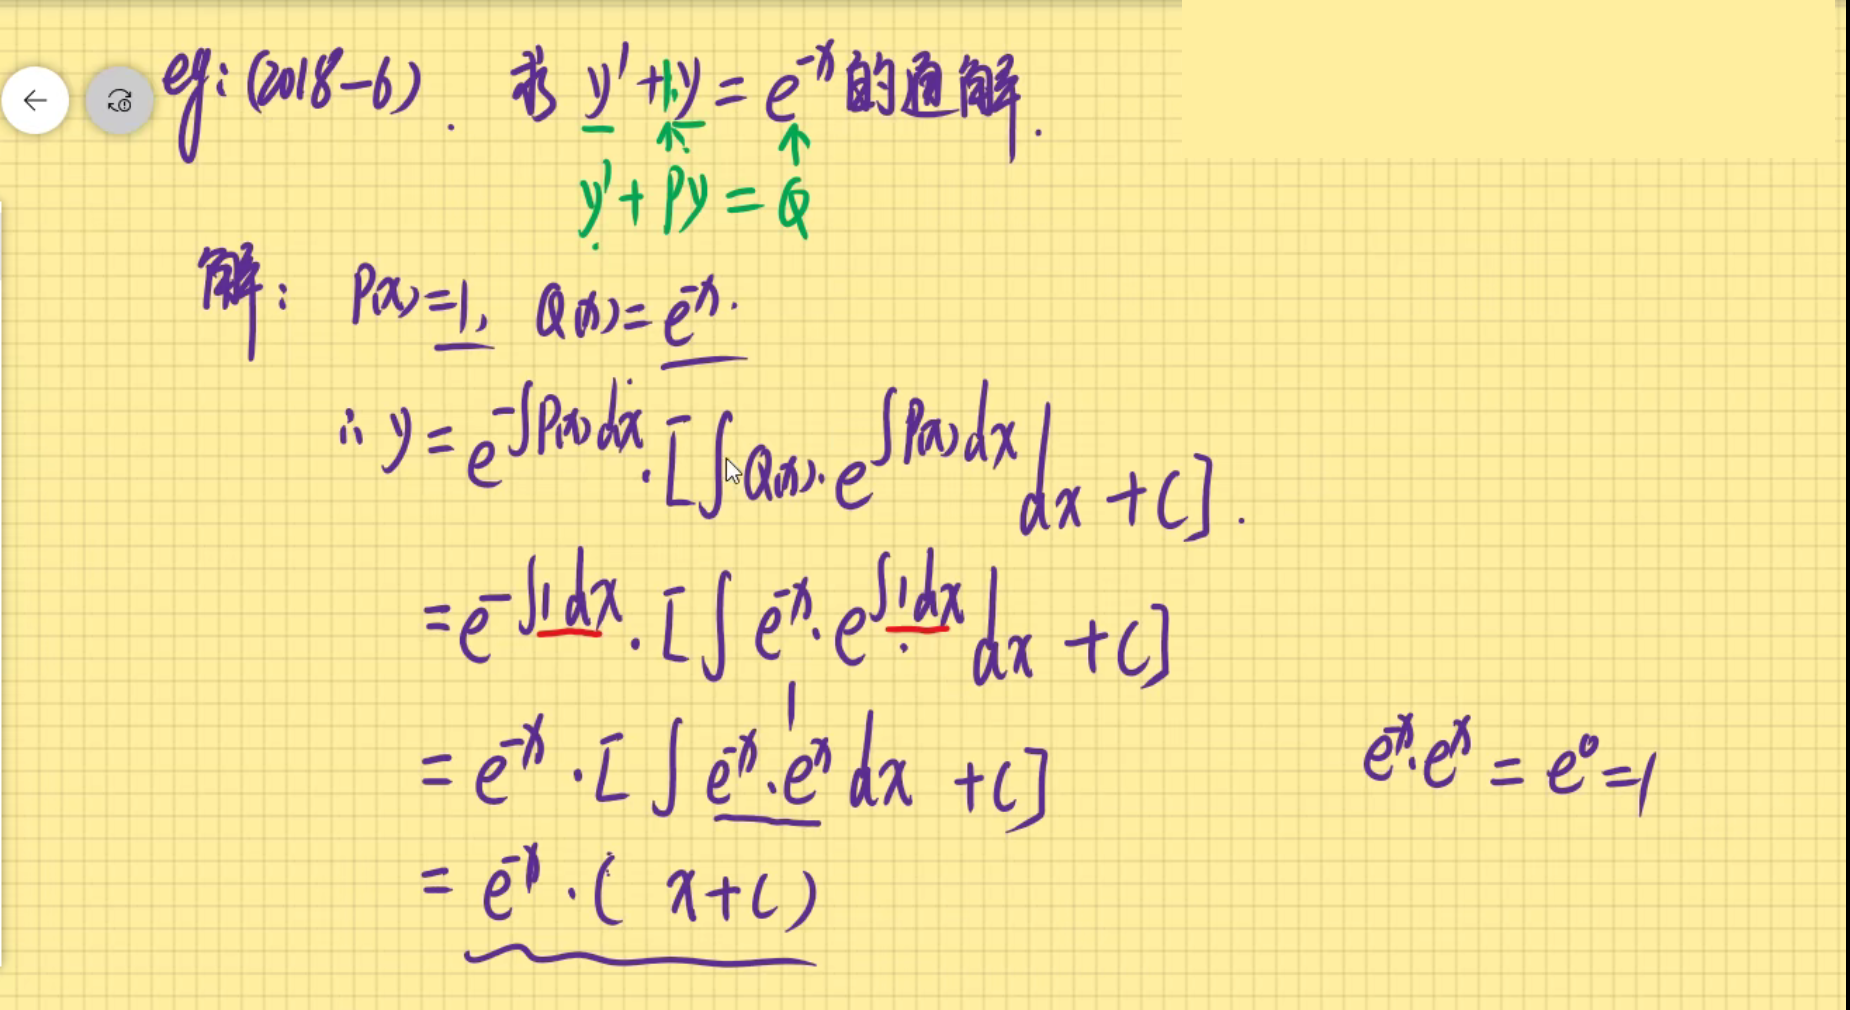 eg: (2018-6). 求 y' + 1·y = e^{-x} 的通解.
y' + Py = Q
解: P(x) = 1, Q(x) = e^{-x}.
∴ y = e^{-∫P(x)dx} · [∫Q(x)·e^{∫P(x)dx} dx + C].
= e^{-∫1dx} · [∫e^{-x}·e^{∫1dx} dx + C]
1
= e^{-x} · [∫e^{-x}·e^{x} dx + C]
e^{-x}·e^{x} = e^{0} = 1
= e^{-x} · (x + C)